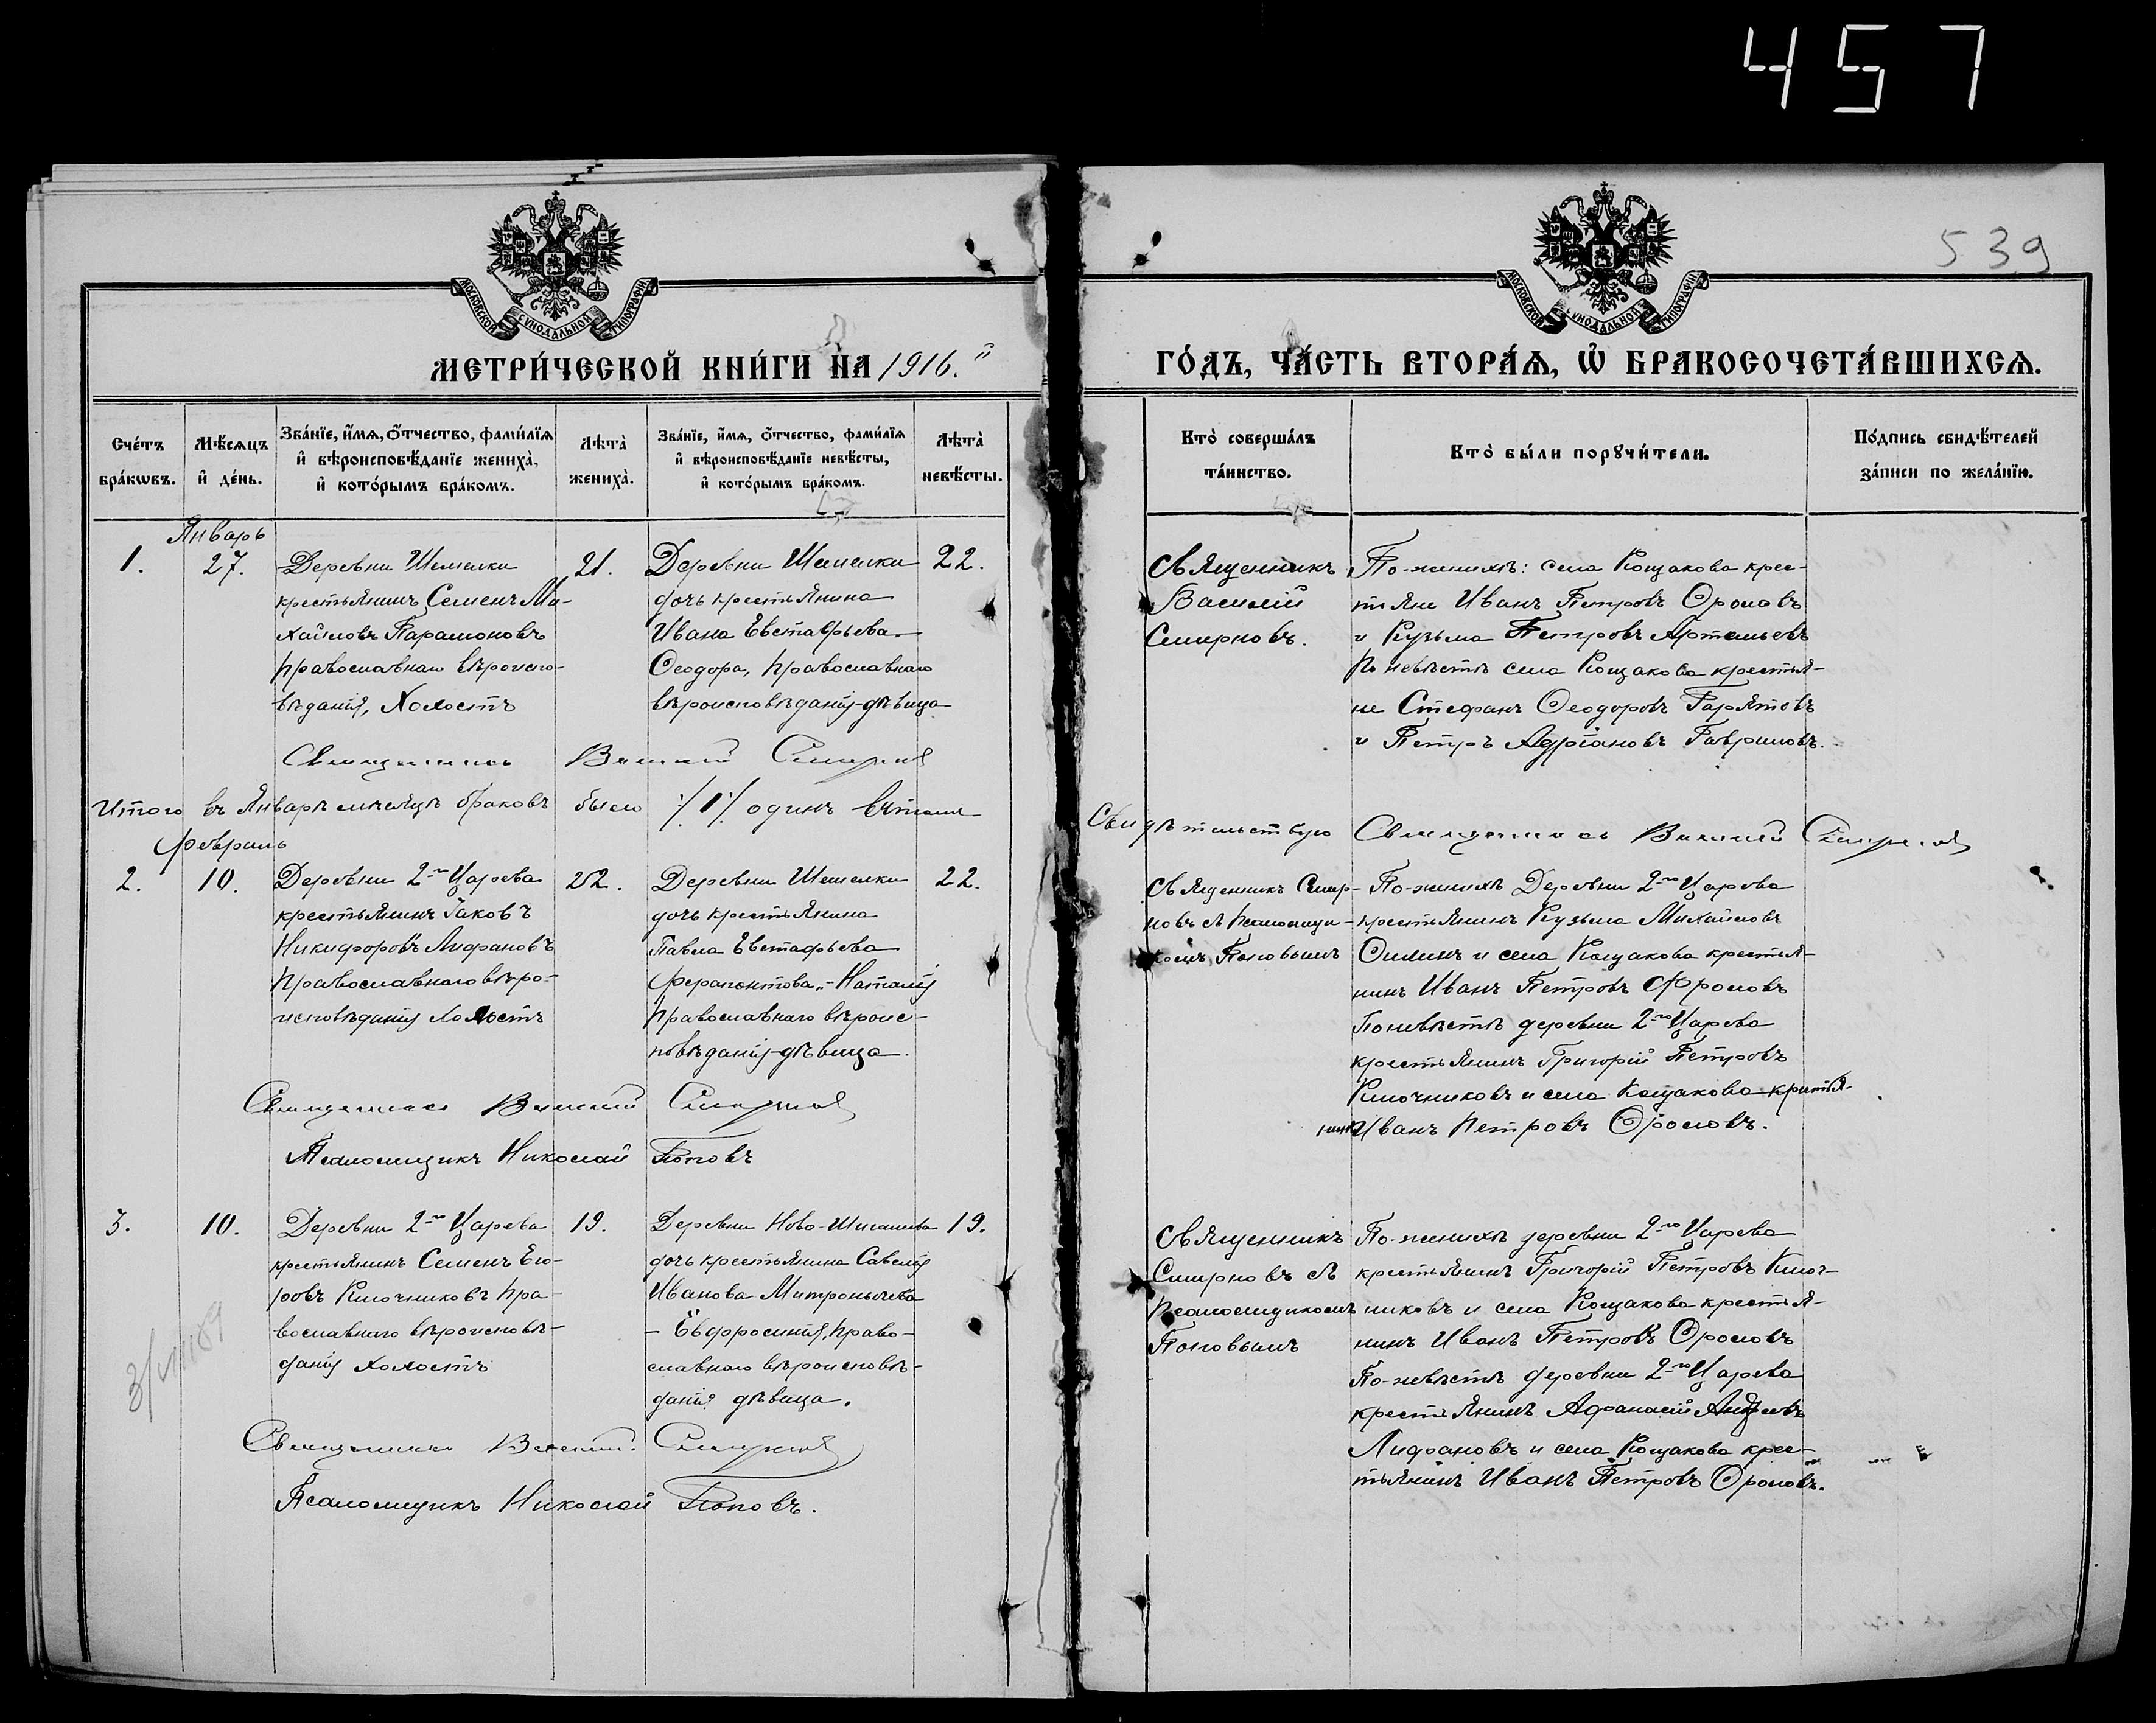 457
539
МОСКОВСКОЙ СѴНОДАЛЬНОЙ ТИПОГРАФІИ
МОСКОВСКОЙ СѴНОДАЛЬНОЙ ТИПОГРАФІИ
МЕТРИ́ЧЕСКОЙ КНИ́ГИ НА 1916.й
ГО́ДЪ, ЧА́СТЬ ВТОРА́Ѧ, Ѿ БРАКОСОЧЕТА́ВШИХСѦ.
Сче́тъ бра́кѡвъ.
Мѣ́сѧцъ и҆ де́нь.
Зва́нїе, и҆́мѧ, ѻ҆́тчество, фами́лїѧ и҆ вѣроисповѣ́данїе жениха̀, и҆ кото́рымъ бра́комъ.
Лѣта̀ жениха̀.
Зва́нїе, и҆́мѧ, ѻ҆́тчество, фами́лїѧ и҆ вѣроисповѣ́данїе невѣ́сты, и҆ кото́рымъ бра́комъ.
Лѣта̀ невѣ́сты.
Кто̀ соверша́лъ та́инство.
Кто̀ бы́ли порꙋчи́тели.
По́дпись свидѣ́телей за́писи по жела́нїю.
Январь
1.
27.
Деревни Шемелки
крестьянинъ Семенъ Ми-
хайловъ Парамоновъ
православнаго вѣроиспо-
вѣданія, Холостъ
21.
Деревни Шемелки
дочь крестьянина
Ивана Евстафьева
Ѳеодора, православнаго
вѣроисповѣданія-дѣвица
22.
Священникъ
Василій
Смирновъ.
По-женихѣ: села Кощакова крес-
тьяне Иванъ Петровъ Ѳроловъ
и Кузьма Петровъ Артемьевъ
По невѣстѣ села Кощакова крестья-
не Стефанъ Ѳеодоровъ
и Петръ Адріановъ Гавриловъ.
Священникъ Василій Смирновъ
Итого въ Январѣ мѣсяцѣ браковъ было /1/ одинъ
Свидѣтельствую Священникъ Василій Смирновъ
Февраль
2.
10.
Деревни 2-го Царева
крестьянинъ Іаковъ
Никифоровъ Лифановъ
Православнаго вѣро-
исповѣданія Холостъ
22.
Деревни Шемелки
дочь крестьянина
Павла Евстафьева
Ферапонтова-Наталія
Православнаго вѣроис-
повѣданія-дѣвица.
22.
Священникъ Смир-
новъ съ псаломщи-
комъ Поповымъ
По-женихѣ Деревни 2-го Царева
крестьянинъ Кузьма Михайловъ
и села Кощакова крестья-
нинъ Иванъ Петровъ Фроловъ
По невѣстѣ деревни 2-го Царева
крестьянинъ Григорій Петровъ
Ключниковъ и села Кощакова крестья-
нинъ Иванъ Петровъ Ѳроловъ.
Священникъ Василій Смирновъ
Псаломщикъ Николай Поповъ
3.
10.
Деревни 2-го Царева
крестьянинъ Семенъ Его-
ровъ Ключниковъ пра-
вославнаго вѣроисповѣ-
данія холостъ
19.
Деревни Ново-Шигалеева
дочь крестьянина Савелія
Иванова Митронычева
- Евфросинія, право-
славнаго вѣроисповѣ-
данія дѣвица.
19.
Священникъ
Смирновъ съ
псаломщикомъ
Поповымъ
По-женихѣ деревни 2-го Царева
крестьянинъ Григорій Петровъ Ключ-
никовъ и села Кощакова крестья-
нинъ Иванъ Петровъ Ѳроловъ
По-невѣстѣ деревни 2-го Царева
крестьянинъ Афанасій
Лифановъ и села Кощакова крес-
тьянинъ Иванъ Петровъ Ѳроловъ.
Священникъ Василій Смирновъ
Псаломщикъ Николай Поповъ.